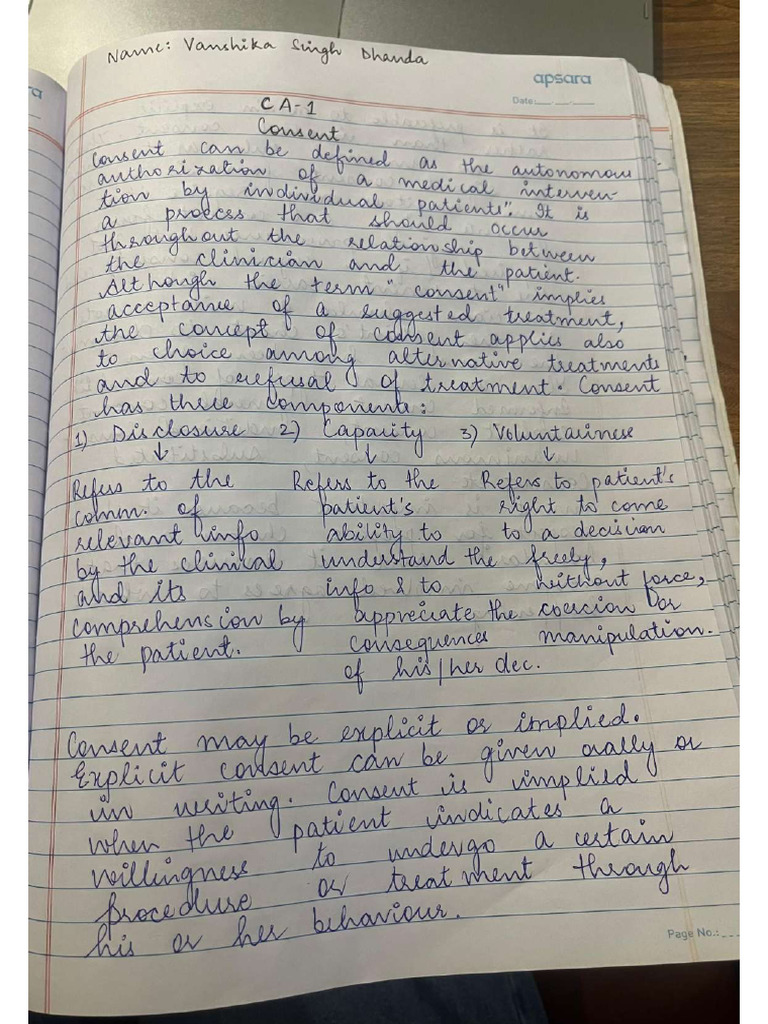 Name: Vanshika Singh Dhanda
apsara
Date:
CA-1
Consent
Consent can be defined as the autonomous
authorization of a medical interven-
tion by individual patients". It is
a process that should occur
throughout the relationship between
the clinician and the patient.
Although the term "consent" implies
acceptance of a suggested treatment,
the concept of consent applies also
to choice among alternative treatments
and to refusal of treatment. Consent
has three components:
1) Disclosure 2) Capacity 3) Voluntariness
↓ ↓ ↓
Refers to the Refers to the Refers to patient's
comm. of patient's right to come
relevant info ability to to a decision
by the clinical understand the freely,
and its info & to without force,
comprehension by appreciate the coercion or
the patient. consequences manipulation.
of his/her dec.
Consent may be explicit or implied.
Explicit consent can be given orally or
in writing. Consent is implied
when the patient indicates a
willingness to undergo a certain
procedure or treatment through
his or her behaviour.
Page No.: